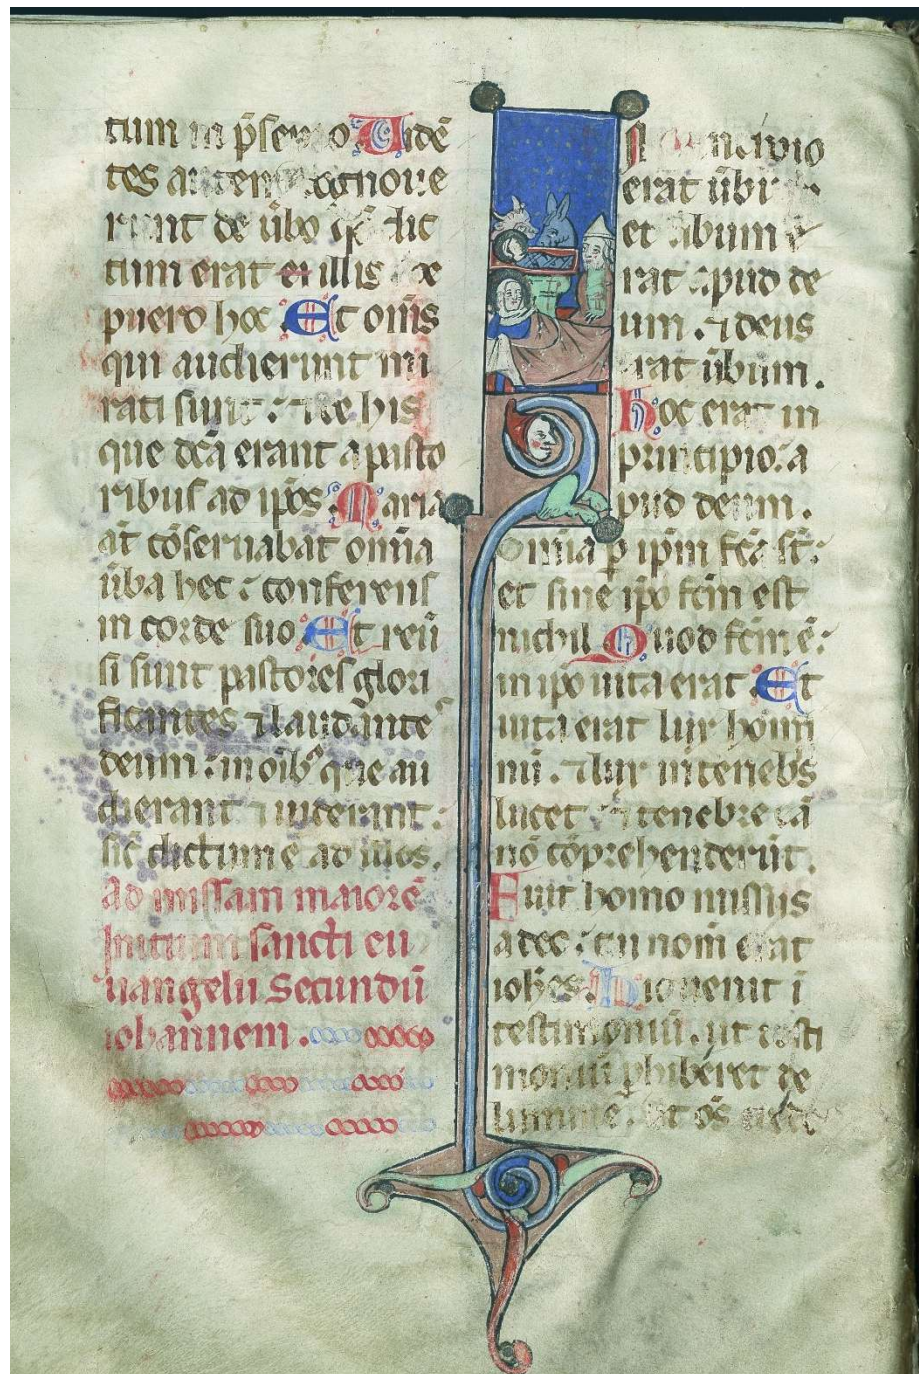 tum in p̄sepio Uidē
tes autem cognoue
runt de ūbo qd̄ dic
tum erat illis de
puero hoc Et om̄s
qui audierunt mi
rati sunt: ⁊ de his
que dc̄a erant a pasto
ribus ad ip̄os. Maria
aūt cōseruabat om̄ia
ūba hec: conferens
in corde suo Et reūs
si sunt pastores glori
ficantes ⁊ laudante
deum: in oīb' que au
dierant ⁊ uiderant:
sic̄ dictum ē ad illos.
Ad missam maiorē
Initium sancti eu
uangelii Secundū
iohannem.
In principio
erat ūbū
et ūbum e
rat apud de
um. ⁊ deus
erat ūbum.
hoc erat in
principio: a
pud deum.
Omnia ꝑ ip̄m fc̄a st̄:
et sine ip̄o fc̄m est
nichil Quod fc̄m ē:
in ipo uita erat Et
uita erat lux homi
nū. ⁊ lux in tenebris
lucet: ⁊ tenebre eā
nō cōprehenderūt.
Fuit homo missus
a deo: cui nom̄ erat
ioh̄es. Hic uenit ī
testimoniū. ut testi
moniū ꝑhiberet de
lumine. ut om̄s crede